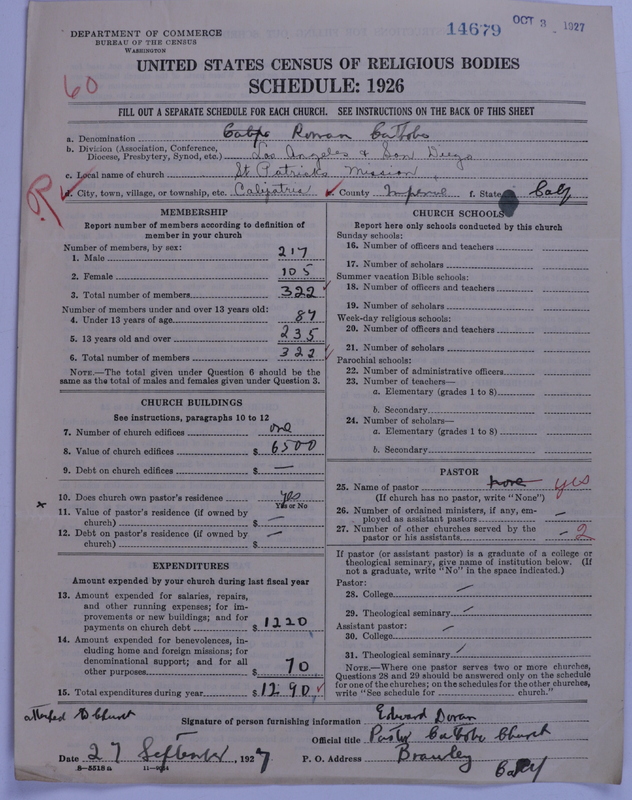 14679 OCT 3 1927
DEPARTMENT OF COMMERCE
BUREAU OF THE CENSUS
WASHINGTON
UNITED STATES CENSUS OF RELIGIOUS BODIES
SCHEDULE: 1926
60
FILL OUT A SEPARATE SCHEDULE FOR EACH CHURCH. SEE INSTRUCTIONS ON THE BACK OF THIS SHEET
a. Denomination Roman
b. Division (Association, Conference,
Diocese, Presbytery, Synod, etc.) Los Angeles & San Diego
c. Local name of church St Patricks Mission
d. City, town, village, or township, etc. Calipatria e. County Imperial f. State Calif
MEMBERSHIP
Report number of members according to definition of
member in your church
Number of members, by sex:
1. Male 217
2. Female 105
3. Total number of members 322
Number of members under and over 13 years old:
4. Under 13 years of age 87
5. 13 years old and over 235
6. Total number of members 322
NOTE.—The total given under Question 6 should be the
same as the total of males and females given under Question 3.
CHURCH BUILDINGS
See instructions, paragraphs 10 to 12
7. Number of church edifices one
8. Value of church edifices $ 6500
9. Debt on church edifices $ —
10. Does church own pastor's residence yes
Yes or No
11. Value of pastor's residence (if owned by
church) $ —
12. Debt on pastor's residence (if owned by
church) $ —
EXPENDITURES
Amount expended by your church during last fiscal year
13. Amount expended for salaries, repairs,
and other running expenses; for im-
provements or new buildings; and for
payments on church debt $ 1220
14. Amount expended for benevolences, in-
cluding home and foreign missions; for
denominational support; and for all
other purposes $ 70
15. Total expenditures during year $ 1290
CHURCH SCHOOLS
Report here only schools conducted by this church
Sunday schools:
16. Number of officers and teachers
17. Number of scholars
Summer vacation Bible schools:
18. Number of officers and teachers
19. Number of scholars
Week-day religious schools:
20. Number of officers and teachers
21. Number of scholars
Parochial schools:
22. Number of administrative officers
23. Number of teachers—
a. Elementary (grades 1 to 8)
b. Secondary
24. Number of scholars—
a. Elementary (grades 1 to 8)
b. Secondary
PASTOR
25. Name of pastor none yes
(If church has no pastor, write "None")
26. Number of ordained ministers, if any, em-
ployed as assistant pastors —
27. Number of other churches served by the
pastor or his assistants — 2
If pastor (or assistant pastor) is a graduate of a college or
theological seminary, give name of institution below. (If
not a graduate, write "No" in the space indicated.)
Pastor:
28. College —
29. Theological seminary —
Assistant pastor:
30. College —
31. Theological seminary —
NOTE.—Where one pastor serves two or more churches,
Questions 28 and 29 should be answered only on the schedule
for one of the churches; on the schedules for the other churches,
write "See schedule for church."
Church
Signature of person furnishing information Edward Doran
Official title Pastor Catholic Church
Date 27 September, 1927 P. O. Address Brawley
Calif
8—5518a 11—9054